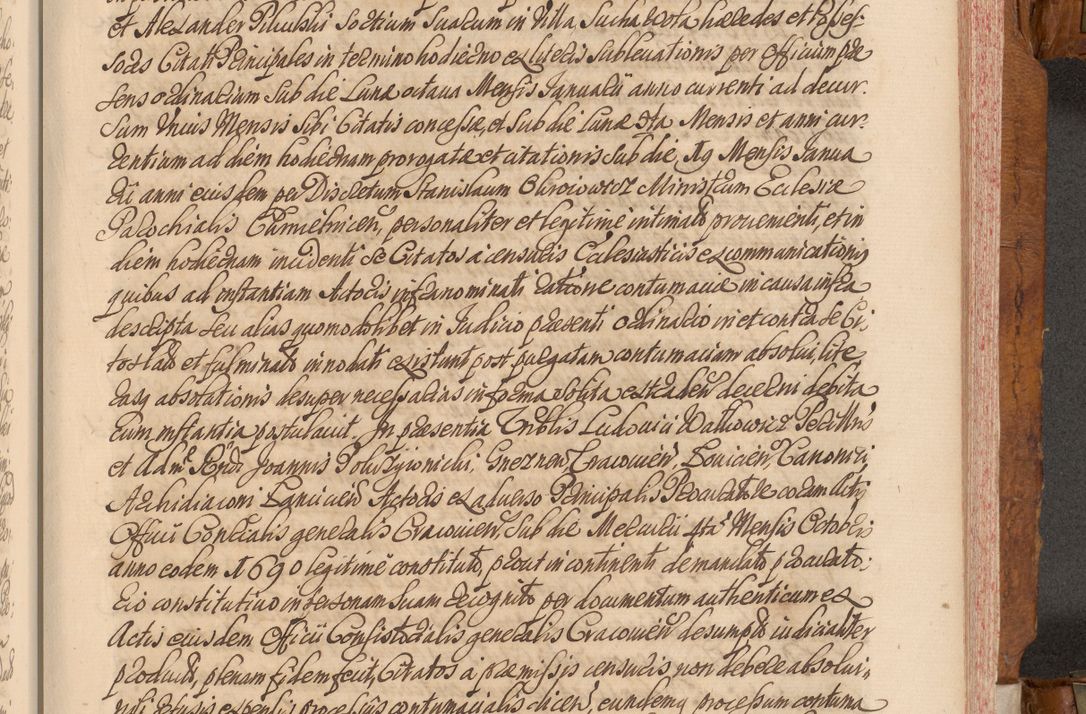 et Alexander Piluulski Soctium Suatum in Villa Sucha Wola hæredes et Posses-
sores Citati Principales in termino hodierno ex literis Sublevationis per Officium præ
sens ordinarium Sub die Lunæ octava Mensis Januarii anno currenti ad decur-
sum Unius Mensis Sibi Citatis concessæ, et Sub die Lunæ 5ta Mensis et anni cur-
rentium ad diem hodiernam prorogatæ et citationis Sub die, 19 Mensis Janua
rii anni eiusdem per Discretum Stanislaum Ministrum Ecclesiæ
Parochialis personaliter et legitimè intimatis provenienti, et in
diem hodiernam incidenti Se Citatos à censuris Ecclesiasticis excommunicationis
quibus ad instantiam Actoris infranominati ratione contumaciæ in causa infra
descripta seu alias quomodolibet in Judicio præsenti ordinario in et contra Se Cri-
tos latis et fulminatis innodati existunt post purgatam contumaciam absolvi lite
rasq absolutionis desuper necessarias in forma solita extraden decerni debita
cum instantia postulavit. In præsentia Nublis Ludovici Wattowicz
et Adm. Rndi Joannis Gneznen Cracovien, Canonici,
Archidiaconi Actoris ex adverso Principalis Procuratore coram Actis
Officii Contralis generalis Cracovien, Sub die Mercurii 4ta Mensis Octobris
anno eodem 1690 legitimè constituto, prout in continenti demandato procurato-
rio constitutivo in personam Suam recognito per documentum authenticum ex
Actis eiusdem Officii Consistorialis generalis Cracovien desumpto iudicialiter
producto, plenam fidem fecit, Citatos à præmissis censuris non debere absolvi,
nisi refusis expensis processus contumacialis dicen, eundemq processum contuma